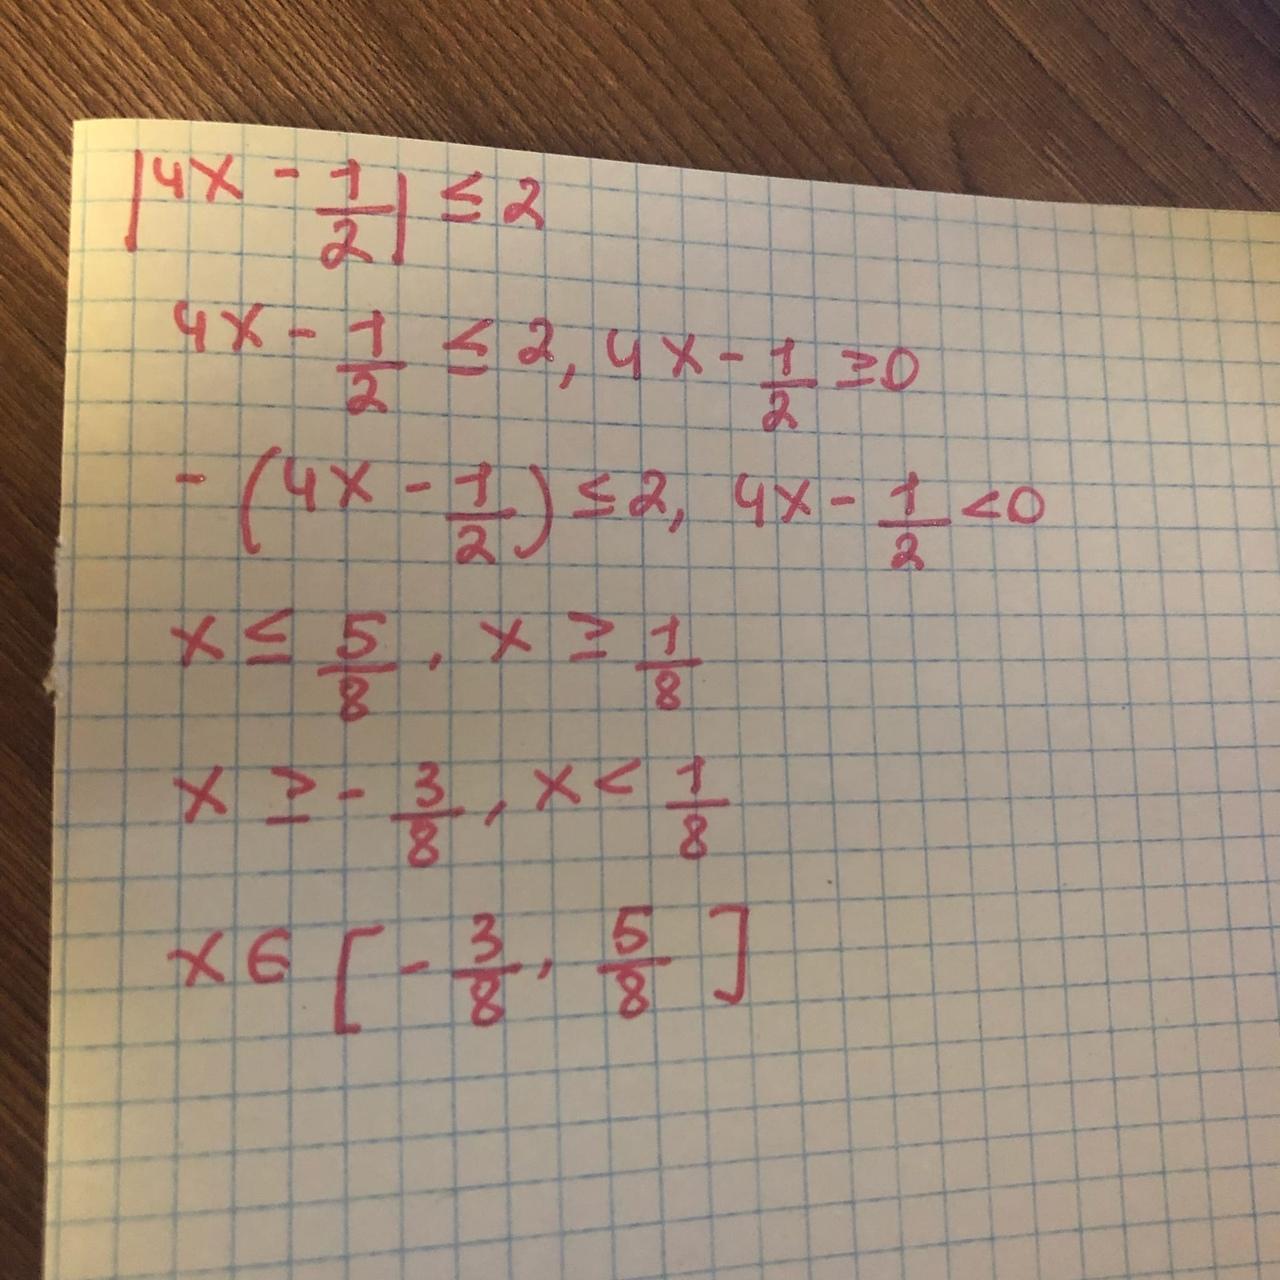 |4x - 1/2| ≤ 2
4x - 1/2 ≤ 2, 4x - 1/2 ≥ 0
- (4x - 1/2) ≤ 2, 4x - 1/2 < 0
x ≤ 5/8, x ≥ 1/8
x ≥ - 3/8, x < 1/8
x ∈ [- 3/8, 5/8]